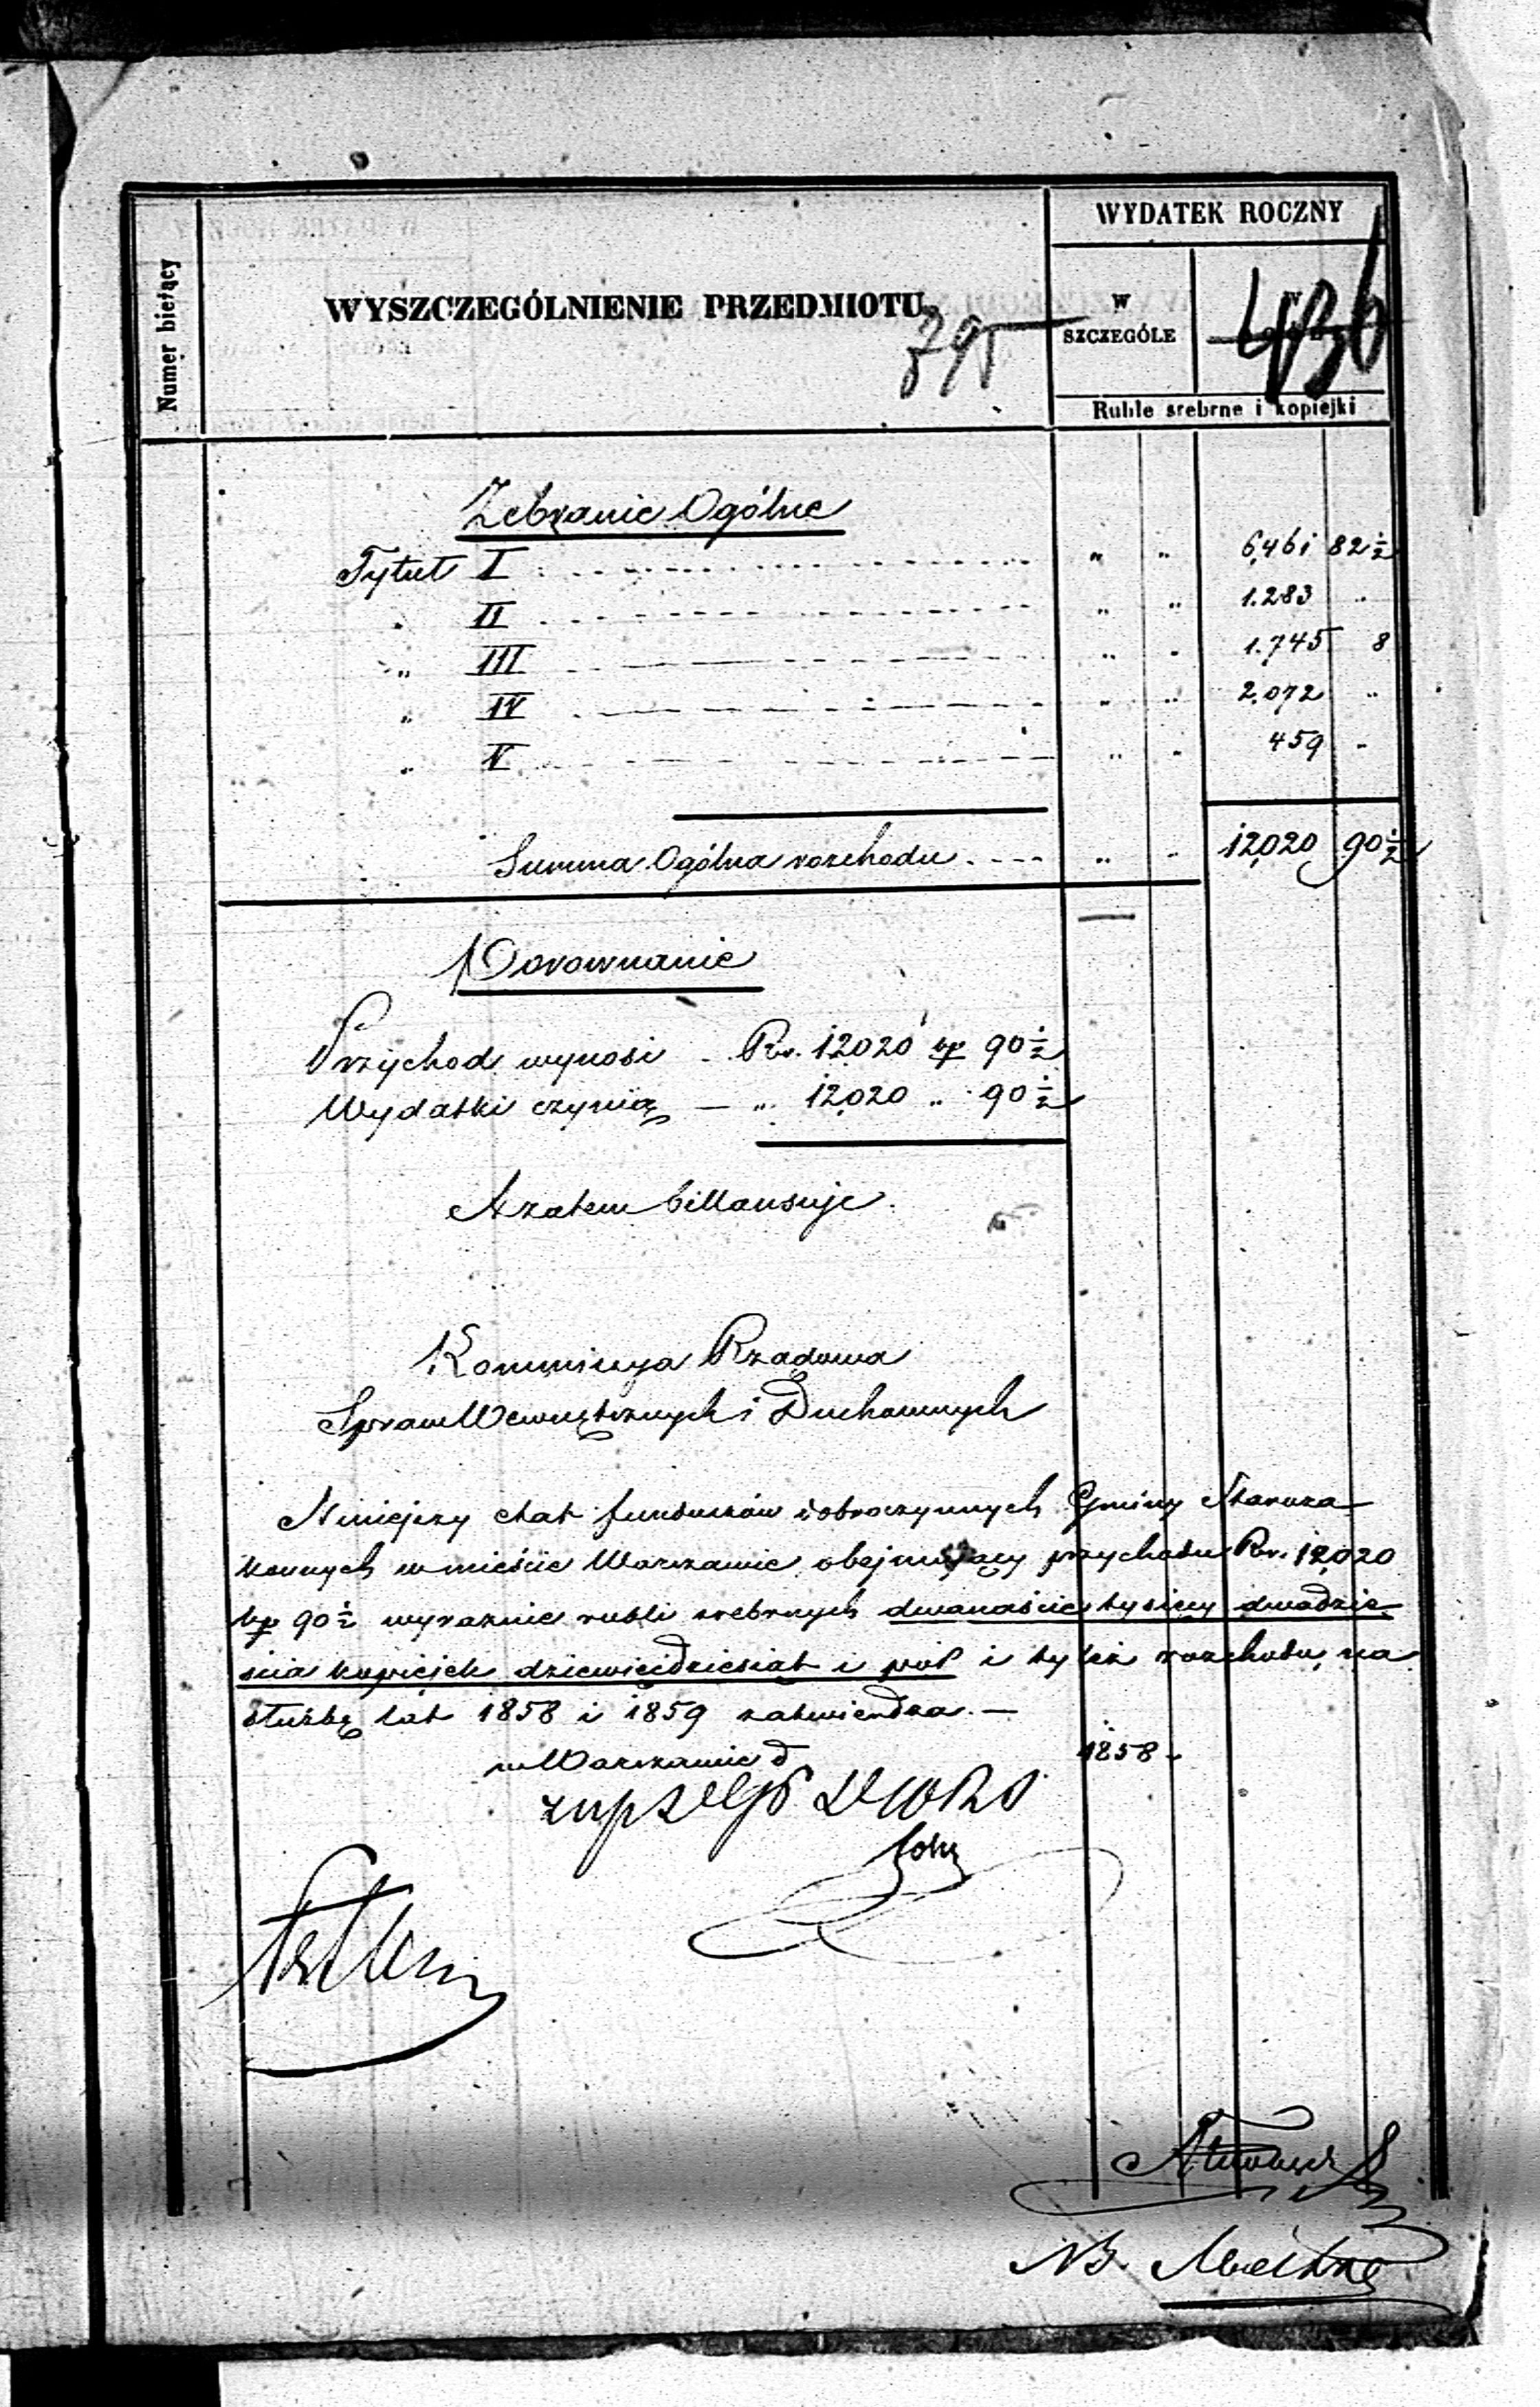 Numer bieżący
WYSZCZEGÓLNIENIE PRZEDMIOTU
WYDATEK ROCZNY
W SZCZEGÓLE
Ruble srebrne i kopiejki
795
436
Zebranie Ogólne
Tytuł I „ „ 6,461 82½
„ II „ „ 1.283 „
„ III „ „ 1.745 8
„ IV „ „ 2,072 „
„ V „ „ 459 „
Summa Ogólna rozchodu „ „ 12,020 90½
Porownanie
Przychod wynosi Rs. 12,020 kp 90½
Wydatki czynią — „ 12,020 „ 90½
A zatem billansuje.
Kommissya Rządowa
Spraw Wewnętrznych i Duchownych
Niniejszy etat funduszów dobroczynnych Gminy Staroza-
konnych w mieście Warszawie, obejmujący przychodu Rs. 12,020
kp 90½ wyraznie rubli srebrnych dwanaście tysięcy dwadzie-
ścia kopiejek dziewięćdziesiąt i pół i tyleż rozchodu, na
służbę lat 1858 i 1859 zatwierdza. —
w Warszawie d 1858 -